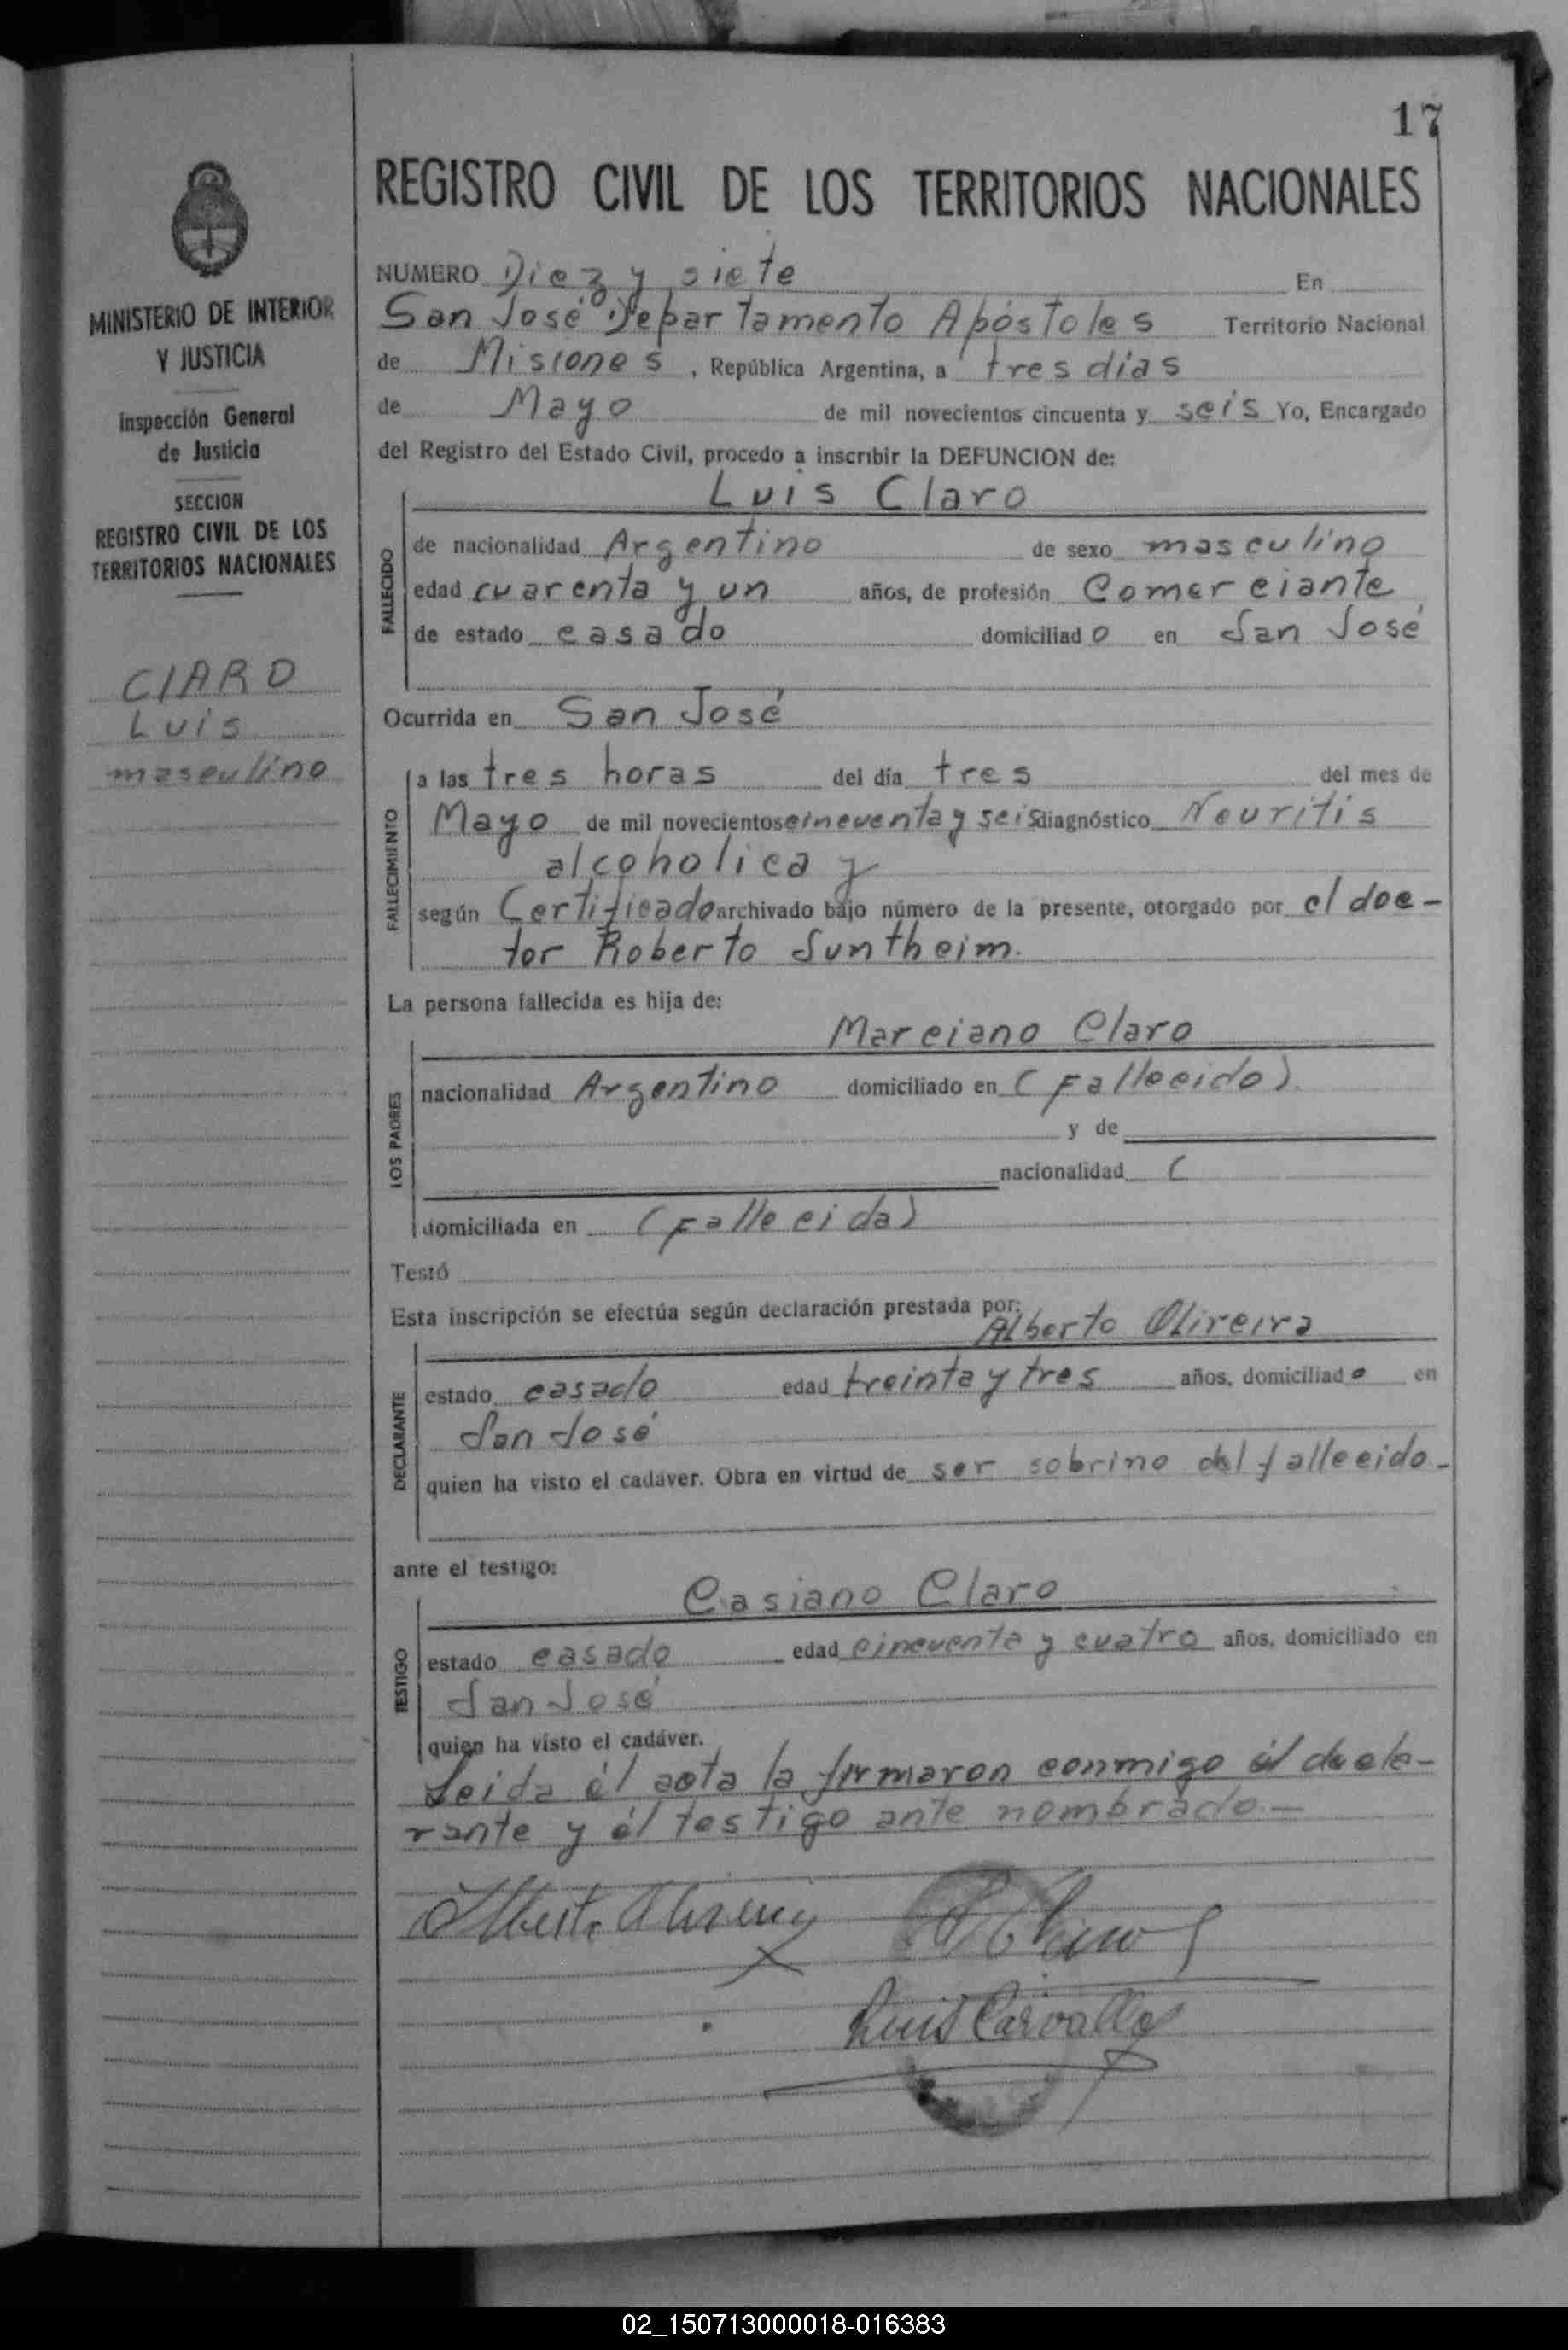 17
REGISTRO CIVIL DE LOS TERRITORIOS NACIONALES
MINISTERIO DE INTERIOR
Y JUSTICIA
Inspección General
de Justicia
SECCION
REGISTRO CIVIL DE LOS
TERRITORIOS NACIONALES
CLARO
Luis
masculino
NUMERO Diez y siete En
San José Departamento Apóstoles Territorio Nacional
de Misiones, República Argentina, a tres días
de Mayo de mil novecientos cincuenta y seis Yo, Encargado
del Registro del Estado Civil, procedo a inscribir la DEFUNCION de:
Luis Claro
FALLECIDO
de nacionalidad Argentino de sexo masculino
edad cuarenta y un años, de profesión Comerciante
de estado casado domiciliado en San José
Ocurrida en San José
FALLECIMIENTO
a las tres horas del día tres del mes de
Mayo de mil novecientos cincuenta y seis diagnóstico Neuritis
alcoholica y
según Certificado archivado bajo número de la presente, otorgado por el doc-
tor Roberto Suntheim.
La persona fallecida es hija de:
Marciano Claro
LOS PADRES
nacionalidad Argentino domiciliado en (Fallecido).
y de
nacionalidad (
domiciliada en (Fallecida)
Testó
Esta inscripción se efectúa según declaración prestada por:
Alberto Olireira
DECLARANTE
estado casado edad treinta y tres años, domiciliado en
San José
quien ha visto el cadáver. Obra en virtud de ser sobrino del fallecido-
ante el testigo:
Casiano Claro
TESTIGO
estado casado edad cincuenta y cuatro años, domiciliado en
San José
quien ha visto el cadáver.
Leida él acta la firmaron conmigo él decla-
rante y él testigo ante nombrado.-
Alberto Olireira
Luis Carvallo
02_150713000018-016383